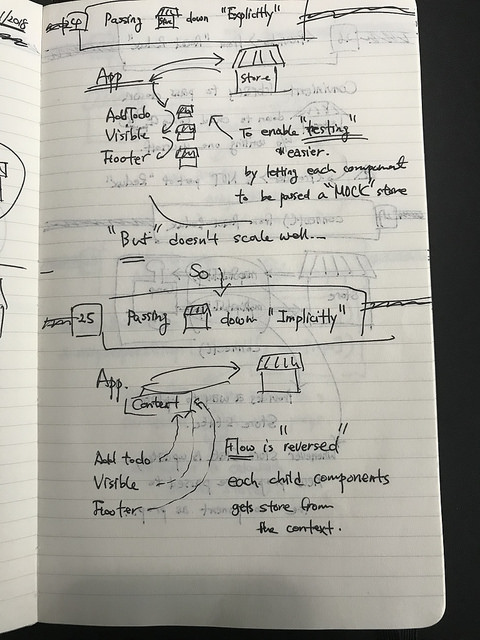 1/2018
24 Passing Store down "Explicitly"
App
Store
Add Todo
Visible
Footer
To enable "testing"
easier.
by letting each component
to be passed a "MOCK" store
"But" doesn't scale well...
So
25 Passing down "Implicitly"
App.
Context
Add todo
Visible
Footer
"Flow is reversed"
each child components
gets store from
the context.